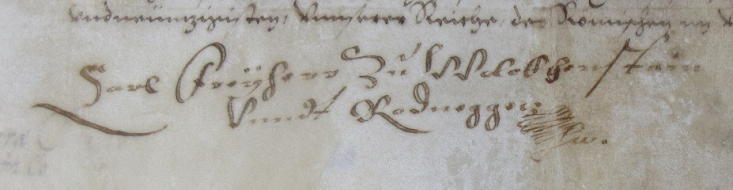 vndneunzigisten, vnnserer Reiche, des Römischen im
Carl Freÿherr Zu Wolckhenstain
Vnndt Rodneggen